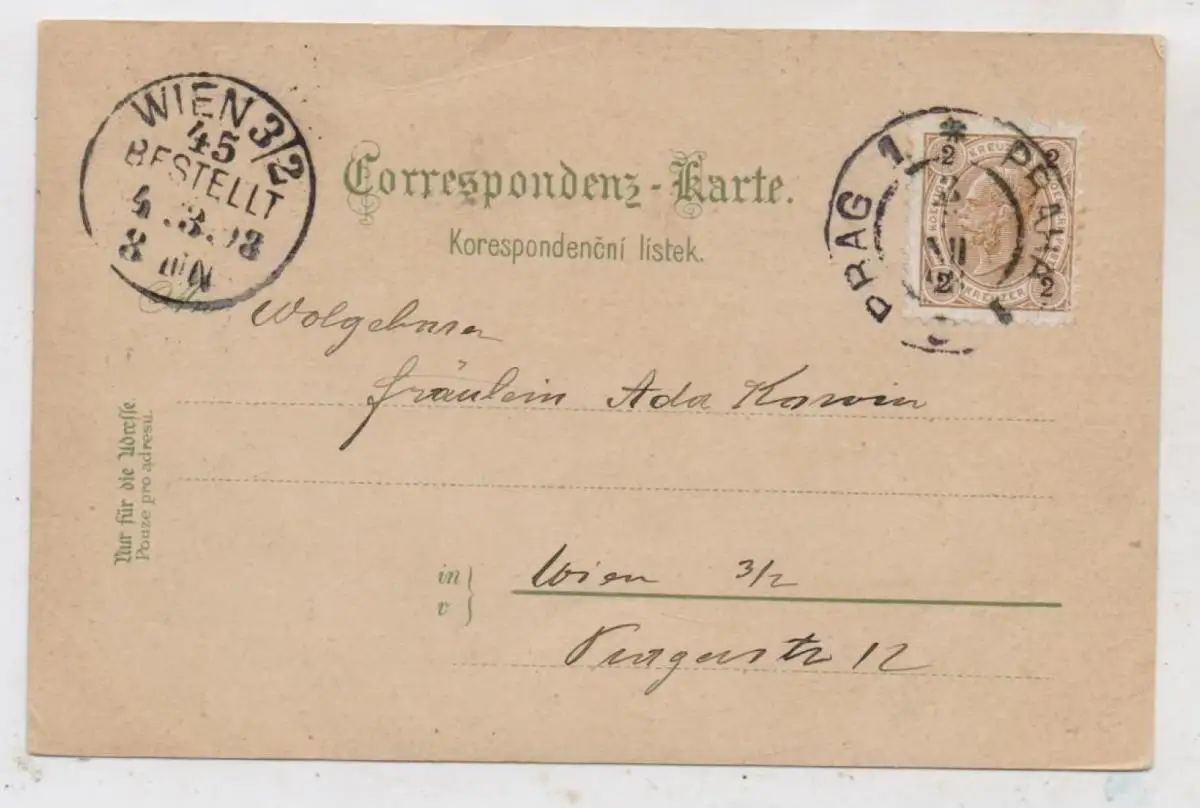 WIEN 3/2
45
BESTELLT
4.3.98
8
PRAG 1.
PRAHA 1
2 KREUZER 2
2 KREUZER 2
Correspondenz-Karte.
Korespondenční lístek.
An
Wolgeboren
Fräulein Ada Karwin
Nur für die Adresse.
Pouze pro adresu.
in
v
Wien 3/2
12